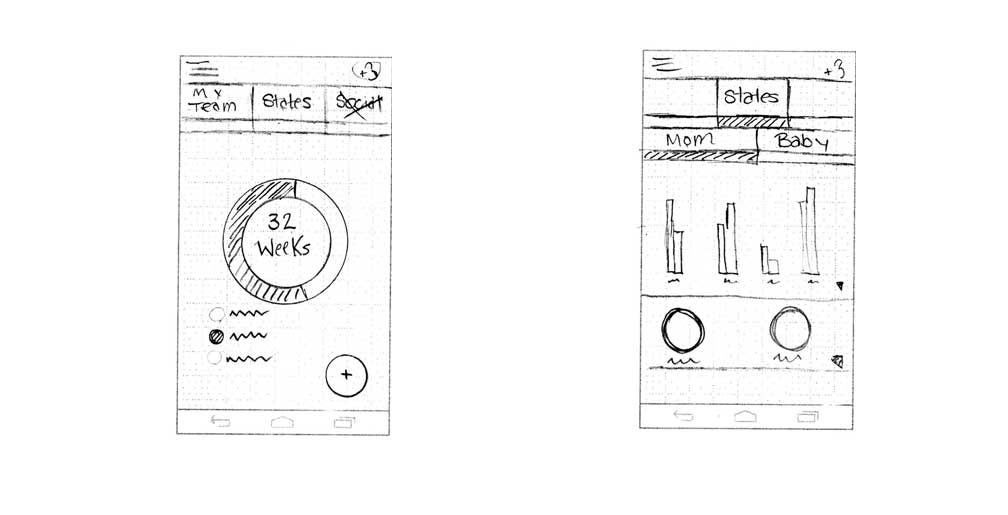 +3
My
Team
States
Social
32
Weeks
+
+3
States
Mom
Baby